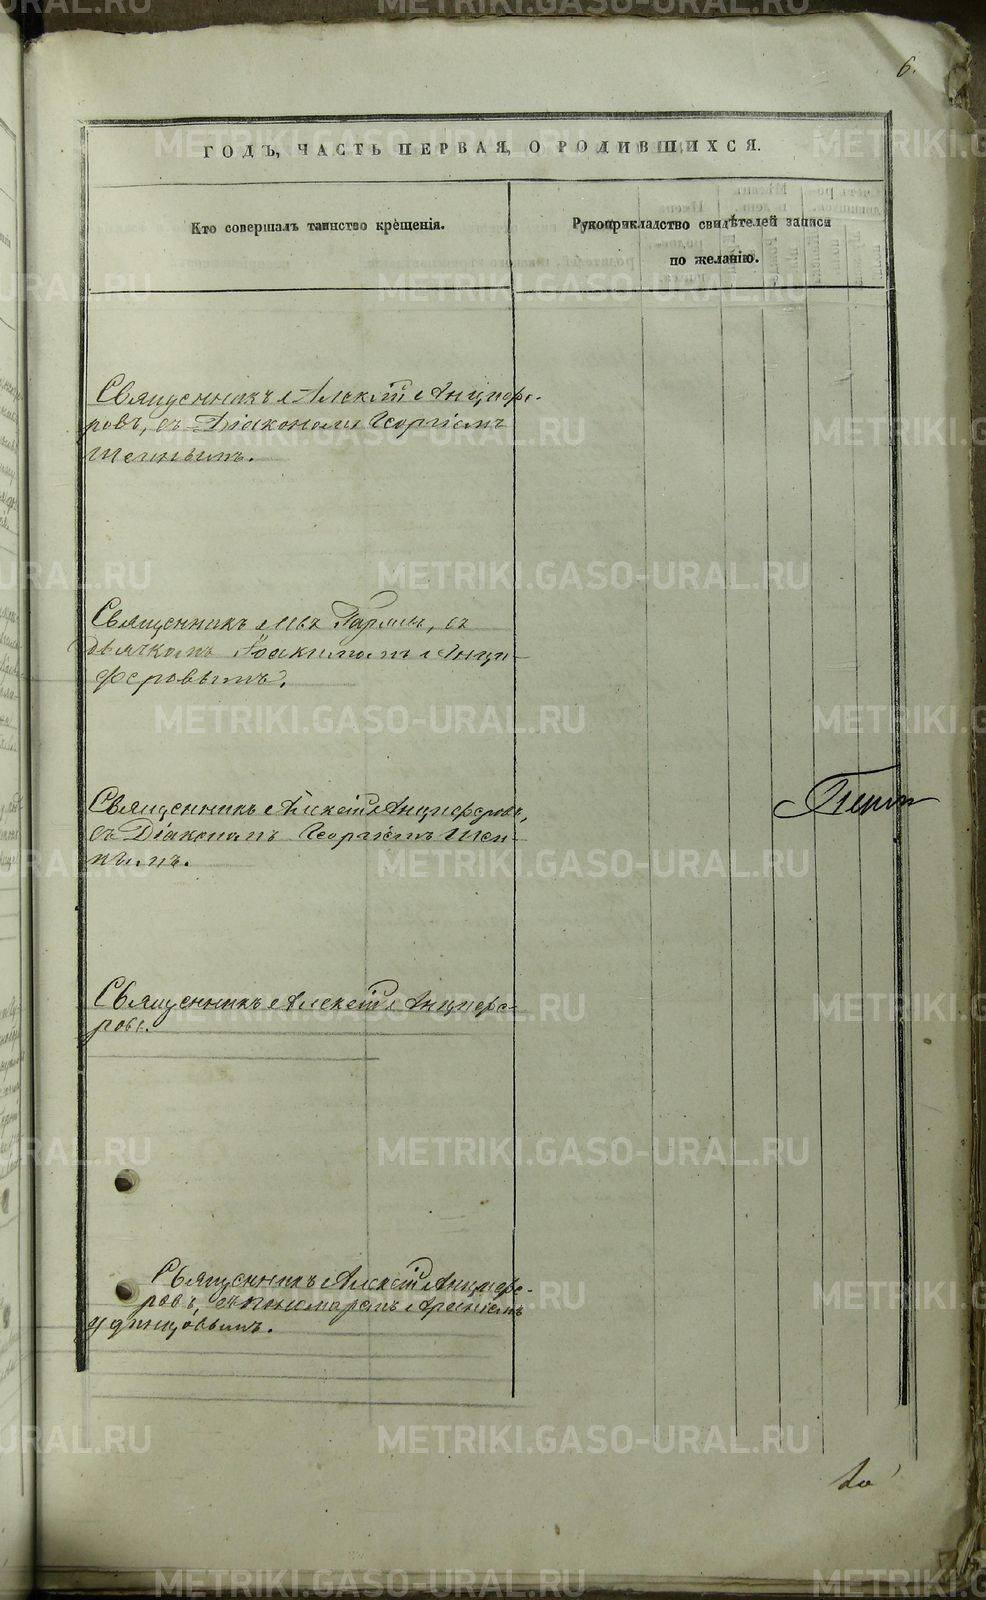 6.
ГОДЪ, ЧАСТЬ ПЕРВАЯ, О РОДИВШИХСЯ.
Кто совершалъ таинство крещенія.
Рукоприкладство свидѣтелей записи
по желанію.
Священникъ Алексій Анцифе-
ровъ, съ Діакономъ Георгіемъ
Священникъ Левъ Паринъ, съ
дьячкомъ Іоакимомъ Анци-
феровымъ.
Священникъ Алексій Анциферовъ,
съ Діакономъ Георгіемъ
Священникъ Алексій Анцифе-
ровъ.
Священникъ Алексій Анцифе-
ровъ, съ пономаремъ
Удинцовымъ.
METRIKI.GASO-URAL.RU